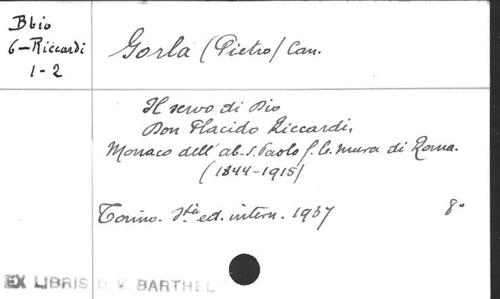 Bbio
6-Riccardi
1-2
Gorla (Pietro) Can.
Il servo di Dio
Don Placido Riccardi,
Monaco dell'ab. S. Paolo f. le mura di Roma.
(1844-1915)
Torino. Stà ed. intern. 1937 8º
EX LIBRIS D. V. BARTHEL